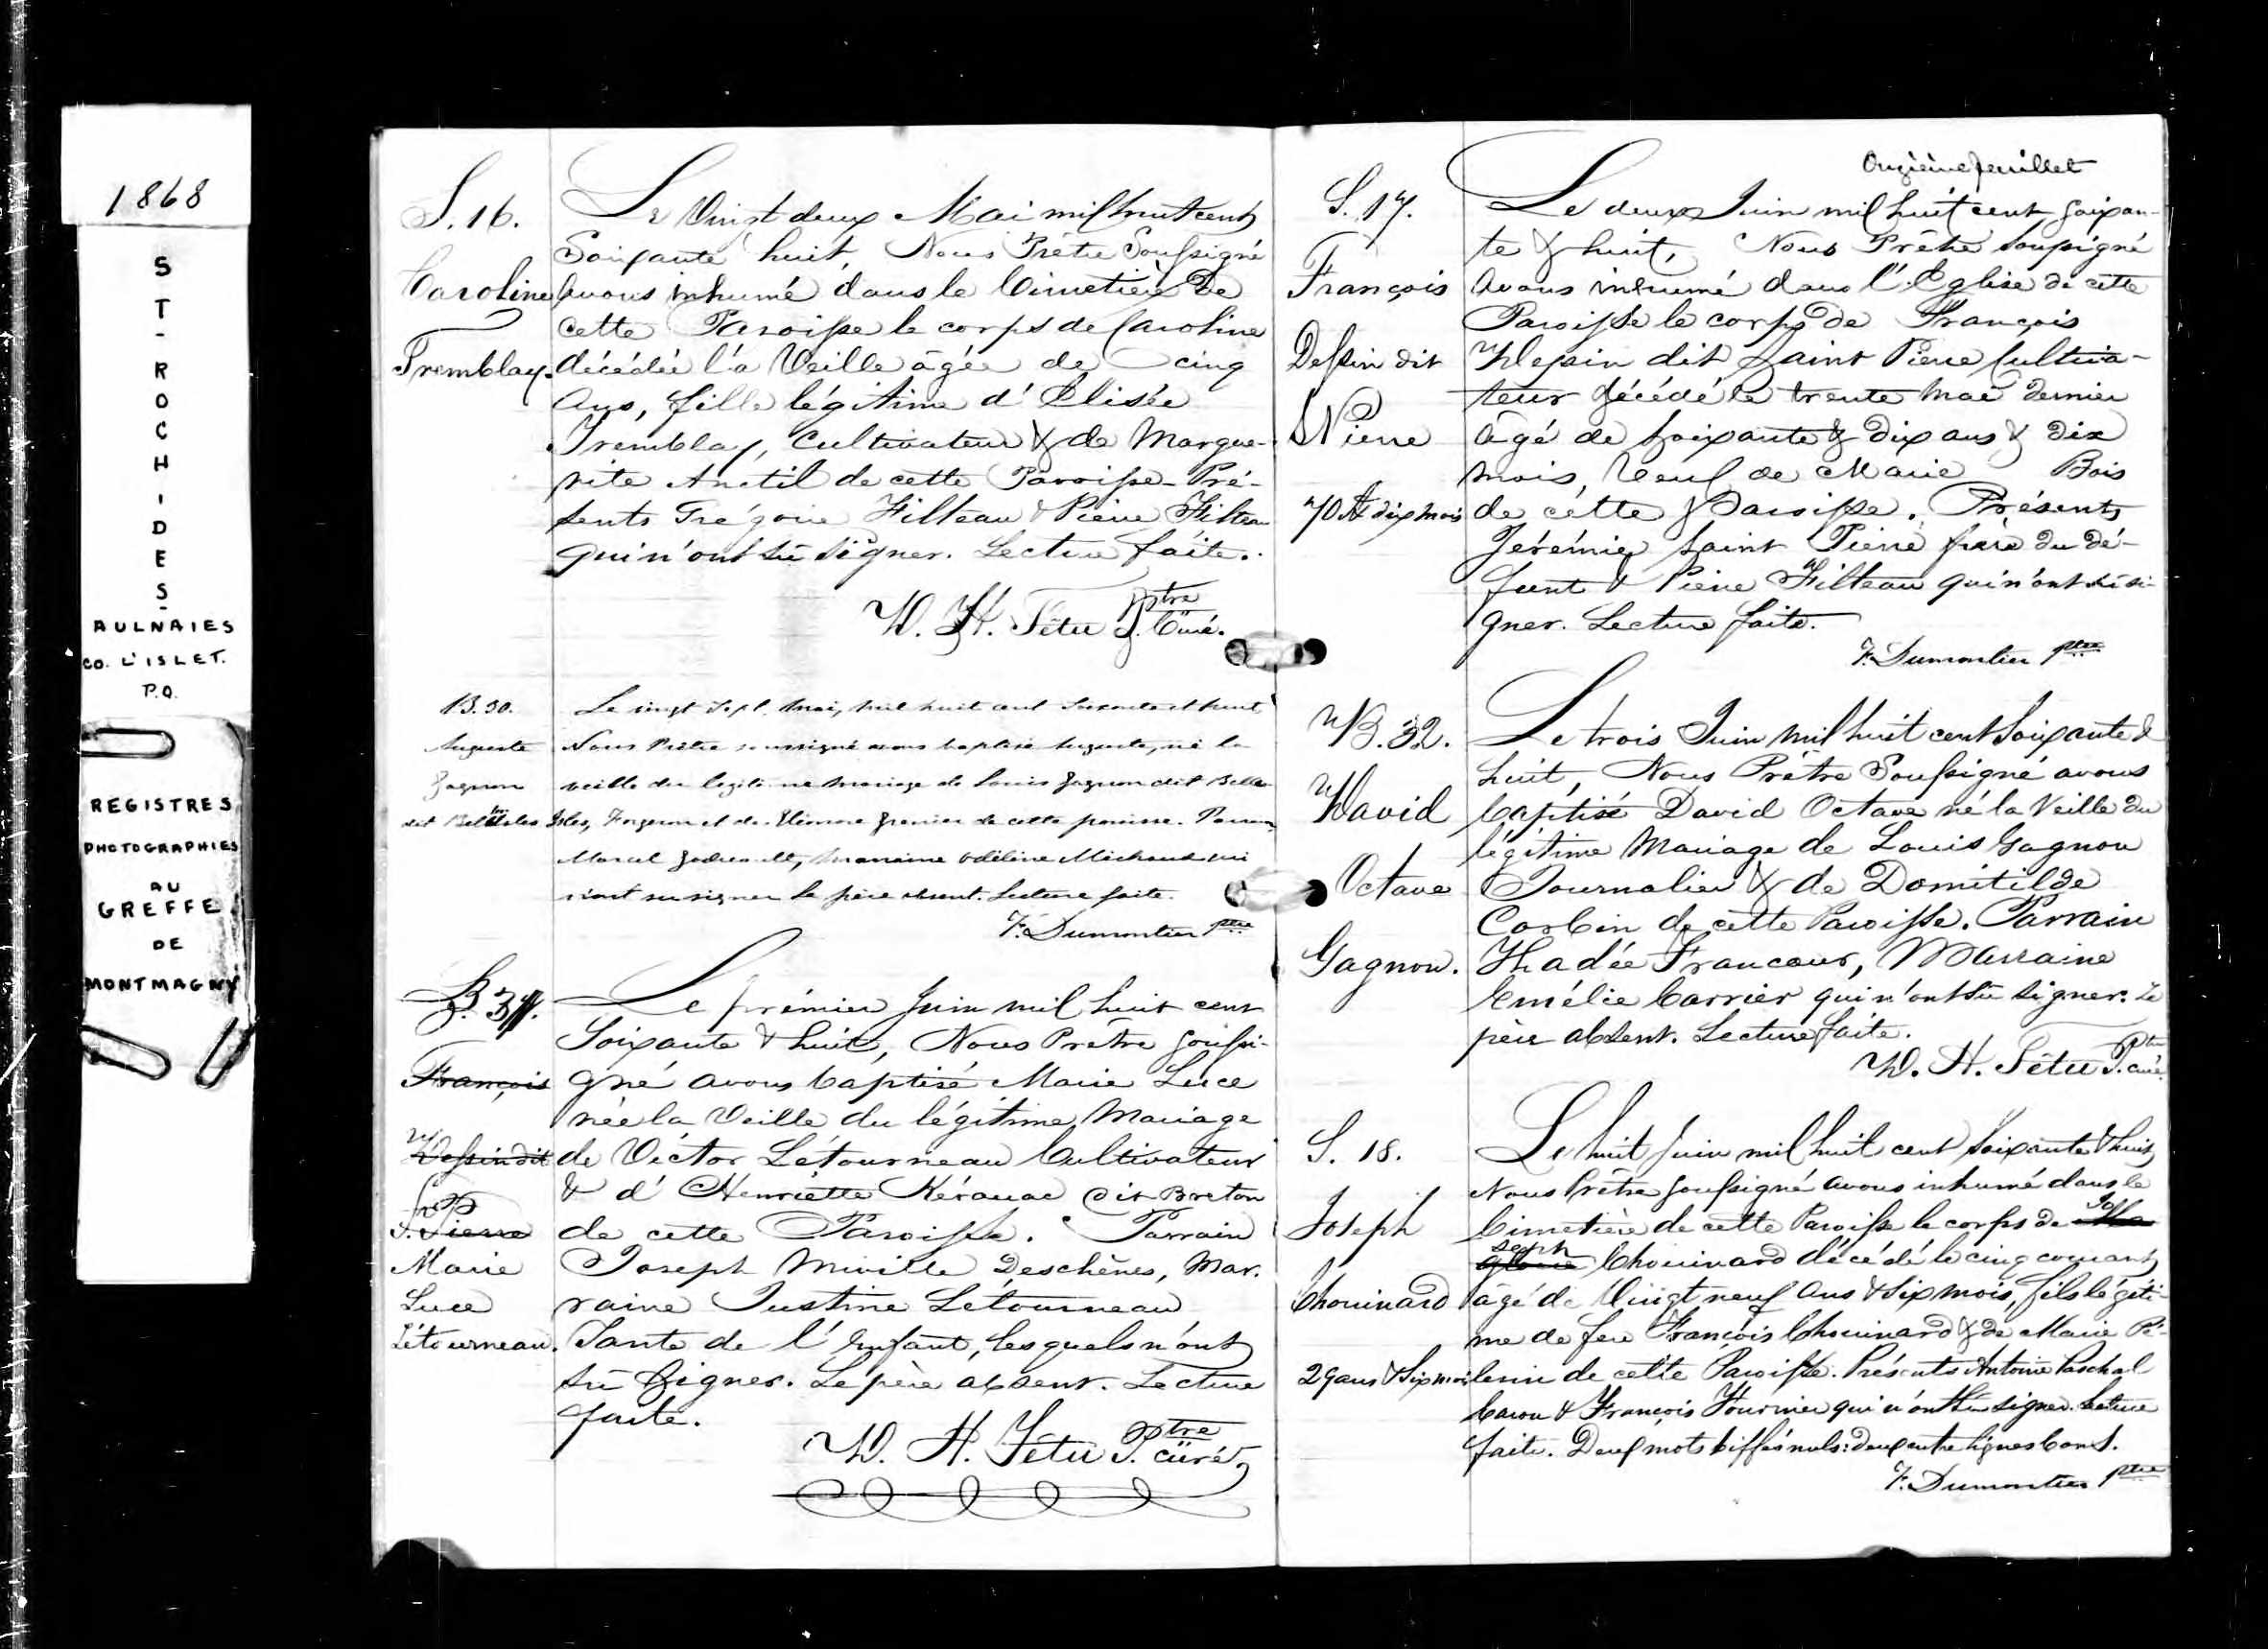 1868
ST-ROCH-DES-
AULNAIES
CO. L'ISLET.
P.Q.
REGISTRES
PHOTOGRAPHIES
AU
GREFFE
DE
MONTMAGNY
S. 16.
Caroline
Tremblay.
Le Vingt deux Mai mil huit cent
Soixante huit, Nous Prêtre Soussigné
avons inhumé dans le Cimetière De
cette Paroisse le corps de Caroline
décédée la Veille âgée de cinq
Ans, fille légitime d'Elisée
Tremblay, Cultivateur & de Margue-
rite Anctil de cette Paroisse. Pré-
sents Grégoire Filteau & Pierre Filteau
qui n'ont sû signer. Lecture faite.
D. H. Têtu Ptre
P. Curé.
B. 30.
Auguste
Gagnon
dit Belles Isles
Le vingt Sept Mai, mil huit cent soixante et huit
Nous Prêtre soussigné avons baptisé Auguste, né la
veille du légitime mariage de Louis Gagnon dit Belles
Isles, Forgeron et de Eléonore Grenier de cette paroisse. Parrain
Marcel Godreault, Marraine Odéline Michaud qui
n'ont su signer le père absent. Lecture faite.
F. Dumontier ptre
B. 31.
François
Dessin dit
St Pierre
Marie
Luce
Létourneau.
Le prémier Juin mil huit cent
Soixante & huit, Nous Prêtre Soussi-
gné avons baptisé Marie Luce
née la Veille du légitime Mariage
de Victor Létourneau Cultivateur
& d'Henriette Kérouac dit Breton
de cette Paroisse. Parrain
Joseph Miville Deschênes, Mar-
raine Justine Létourneau
Tante de l'Enfant, lesquels n'ont
sû signer. Le père absent. Lecture
faite.
D. H. Têtu Ptre
P. curé
Onzième feuillet
S. 17.
François
Dessin dit
St Pierre
70 A dix mois
Le deux Juin mil huit cent soixan-
te & huit, Nous Prêtre soussigné
avons inhumé dans l'Eglise de cette
Paroisse le corps de François
Dessin dit Saint Pierre Cultiva-
teur décédé le trente Mai dernier
âgé de soixante & dix ans & dix
mois, Veuf de Marie Bois
de cette Paroisse. Présents
Jérémie Saint Pierre frère du dé-
funt & Pierre Filteau qui n'ont sû si-
gner. Lecture faite.
F. Dumontier ptre
B. 32.
David
Octave
Gagnon.
Le trois Juin mil huit cent soixante &
huit, Nous Prêtre Soussigné avons
baptisé David Octave né la Veille du
légitime Mariage de Louis Gagnon
Journalier & de Domitilde
Corbin de cette Paroisse. Parrain
Thadée Francoeur, Marraine
Emélie Carrier qui n'ont sû signer. Le
père absent. Lecture faite.
D. H. Têtu Ptre
P. curé
S. 18.
Joseph
Chouinard
29 ans & Six mois
Le huit Juin mil huit cent soixante & huit,
Nous Prêtre soussigné avons inhumé dans le
Cimetière de cette Paroisse le corps de Jo
seph Chouinard décédé le cinq courant
âgé de Vingt neuf Ans & Six mois, fils légiti-
me de feu François Chouinard & de Marie Pé-
lerin de cette Paroisse. Présents Antoine Paschal
Caron & François Fournier qui n'ont sû signer. Lecture
faite. Deux mots biffés nuls: deux entre lignes bons.
F. Dumontier ptre